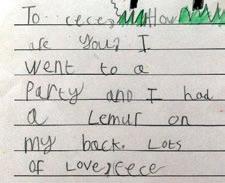 To: cece How
are you? I
went to a
Party and I had
a Lemur on
my back. Lots
of Love, cece